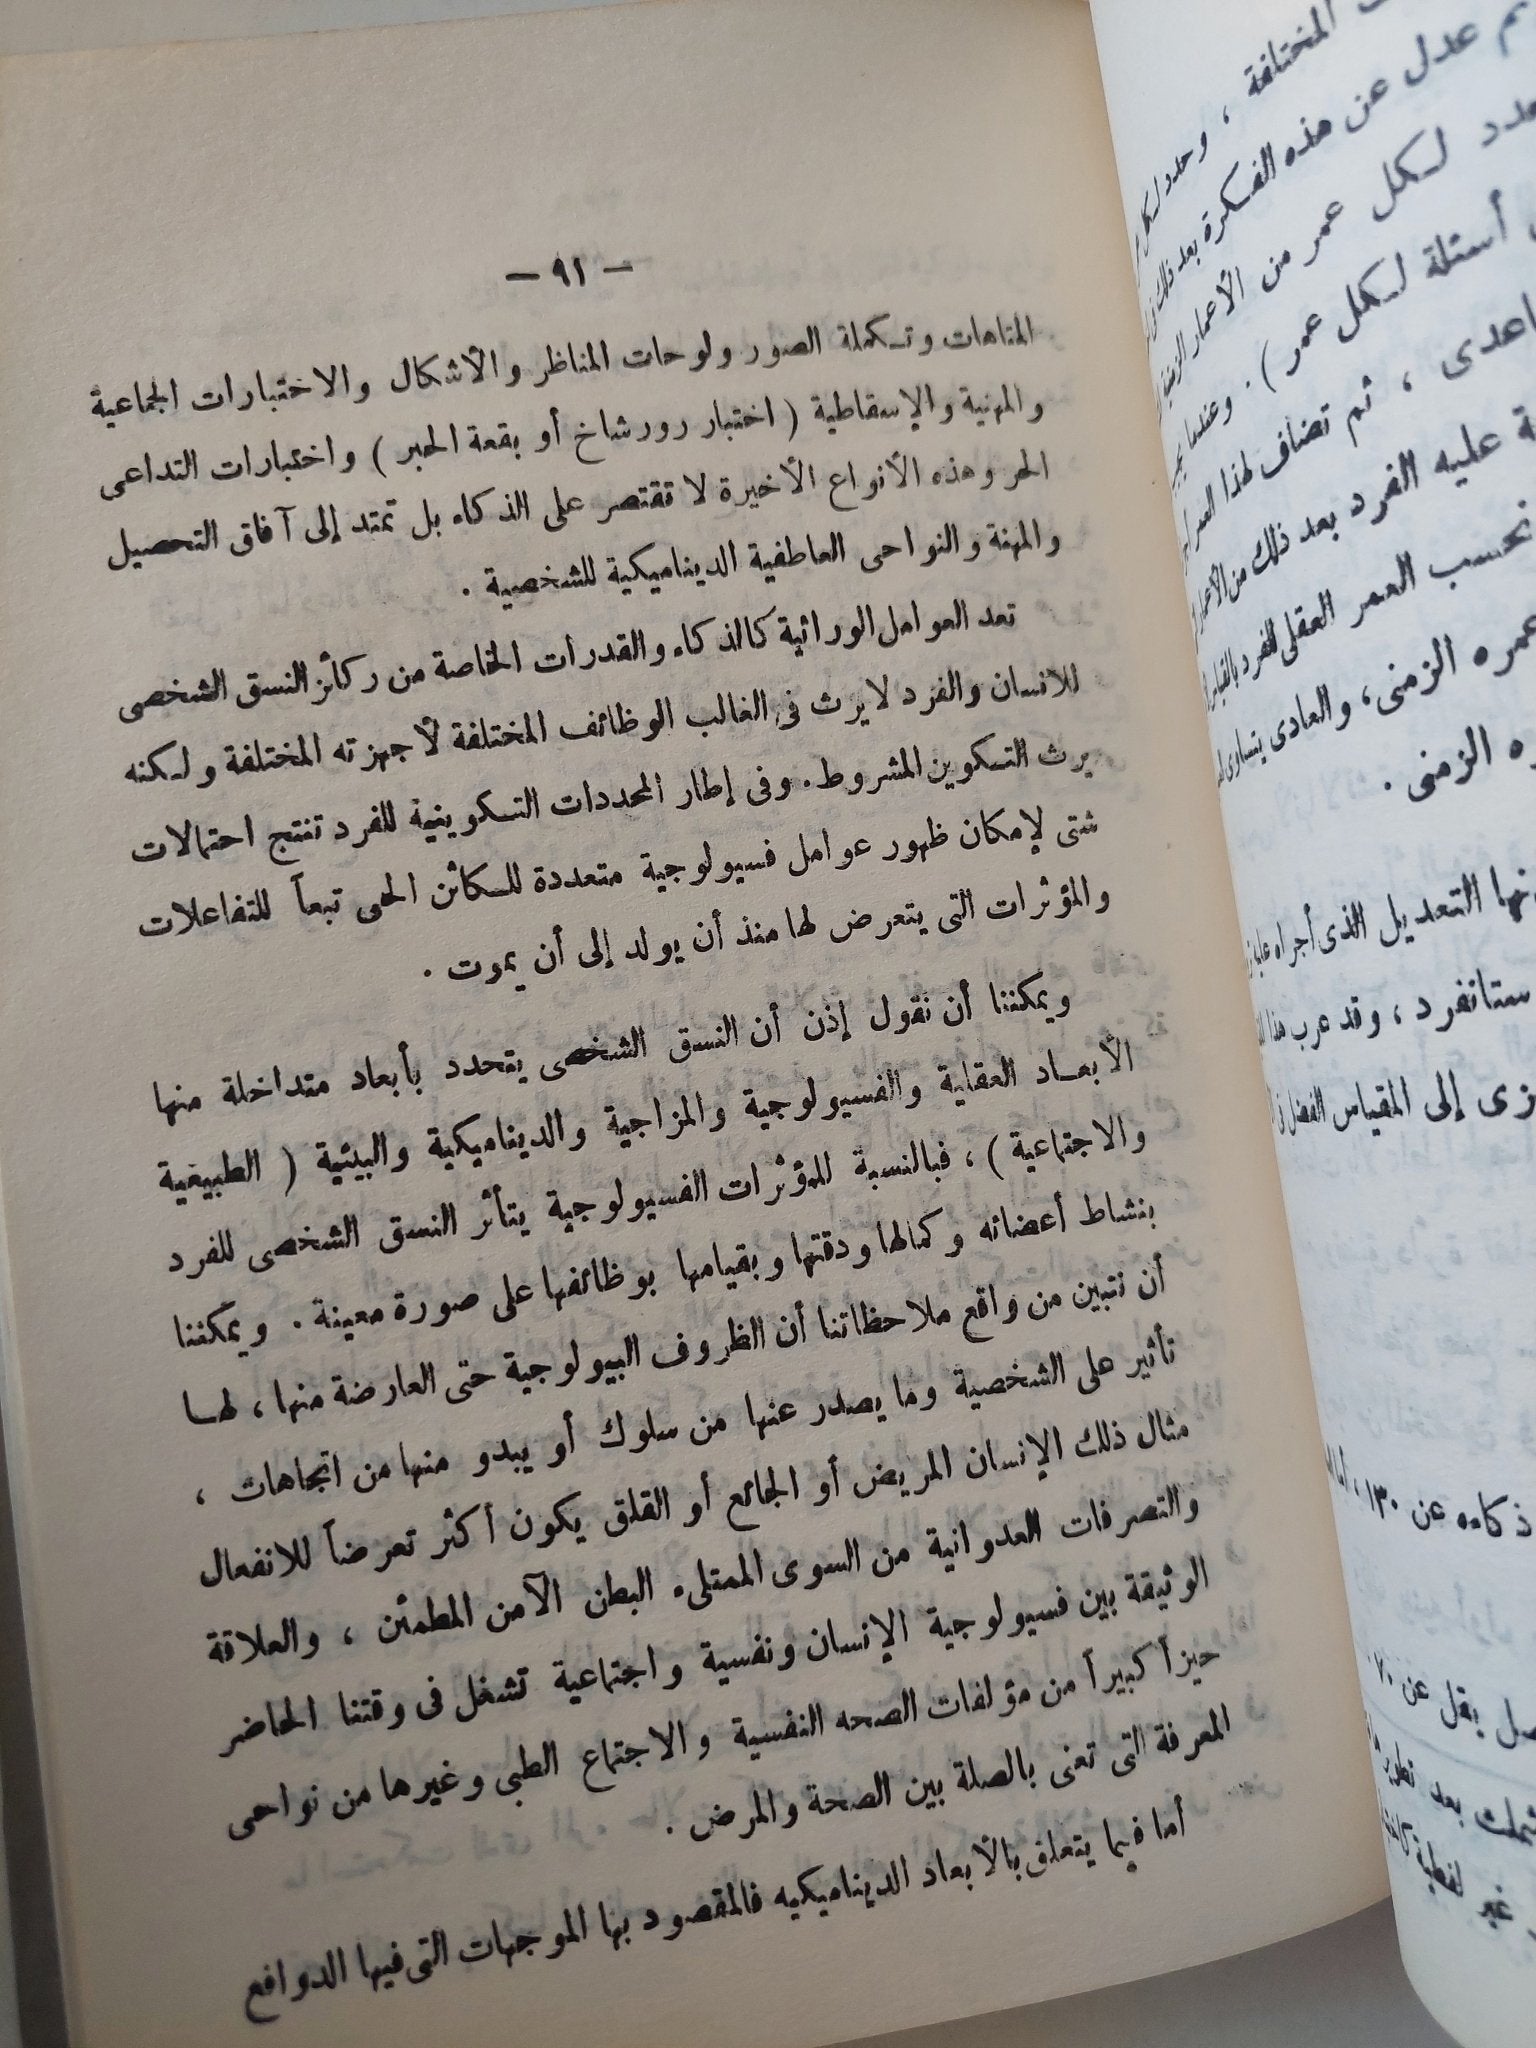 — ٩١ —
المتاهات وتكملة الصور ولوحات المناظر والأشكال والاختبارات الجماعية
والمهنية والإسقاطية ( اختبار رورشاخ أو بقعة الحبر ) واختبارات التداعى
الحر وهذه الأنواع الأخيرة لا تقتصر على الذكاء بل تمتد إلى آفاق التحصيل
والمهنة والنواحى العاطفية الديناميكية للشخصية .
تعد العوامل الوراثية كالذكاء والقدرات الخاصة من ركائز النسق الشخصى
للانسان والفرد لا يرث فى الغالب الوظائف المختلفة لأجهزته المختلفة ولكنه
يرث التكوين المشروط . وفى إطار المحددات التكوينية للفرد تنتج احتمالات
شتى لإمكان ظهور عوامل فسيولوجية متعددة للكائن الحى تبعاً للتفاعلات
والمؤثرات التى يتعرض لها منذ أن يولد إلى أن يموت .
ويمكننا أن نقول إذن أن النسق الشخصى يتحدد بأبعاد متداخلة منها
الأبعاد العقلية والفسيولوجية والمزاجية والديناميكية والبيئية ( الطبيعية
والاجتماعية ) ، فبالنسبة للمؤثرات الفسيولوجية يتأثر النسق الشخصى للفرد
بنشاط أعضائه وكمالها ودقتها وبقيامها بوظائفها على صورة معينة . ويمكننا
أن نتبين من واقع ملاحظاتنا أن الظروف البيولوجية حتى العارضة منها ، لها
تأثير على الشخصية وما يصدر عنها من سلوك أو يبدو منها من اتجاهات ،
مثال ذلك الإنسان المريض أو الجائع أو القلق يكون أكثر تعرضاً للانفعال
والتصرفات العدوانية من السوى الممتلىء البطن الآمن المطمئن ، والعلاقة
الوثيقة بين فسيولوجية الإنسان ونفسية واجتماعية تشغل فى وقتنا الحاضر
حيزاً كبيراً من مؤلفات الصحه النفسية والاجتماع الطبى وغيرها من نواحى
المعرفة التى تعنى بالصلة بين الصحة والمرض .
أما فيما يتعلق بالأبعاد الديناميكيه فالمقصود بها الموجهات التى فيها الدوافع
المختلفة ، وحدد لكل
عدل عن هذه الفكرة بعد ذلك
لكل عمر من الأعمار الزمنية
أسئلة لكل عمر ) . وعندما
، ثم تضاف لهذا العمر
عليه الفرد بعد ذلك من الأعمار
نحسب العمر العقلى للفرد بالقياس
عمره الزمنى ، والعادى يتساوى
الزمنى .
التعديل الذى أجراه عليها
ستانفرد ، وقد عرب هذا
إلى المقياس الفضل فى
ذكاءه عن ١٣٠ ،
يقل عن ٧٠
بعد
غير لفظية